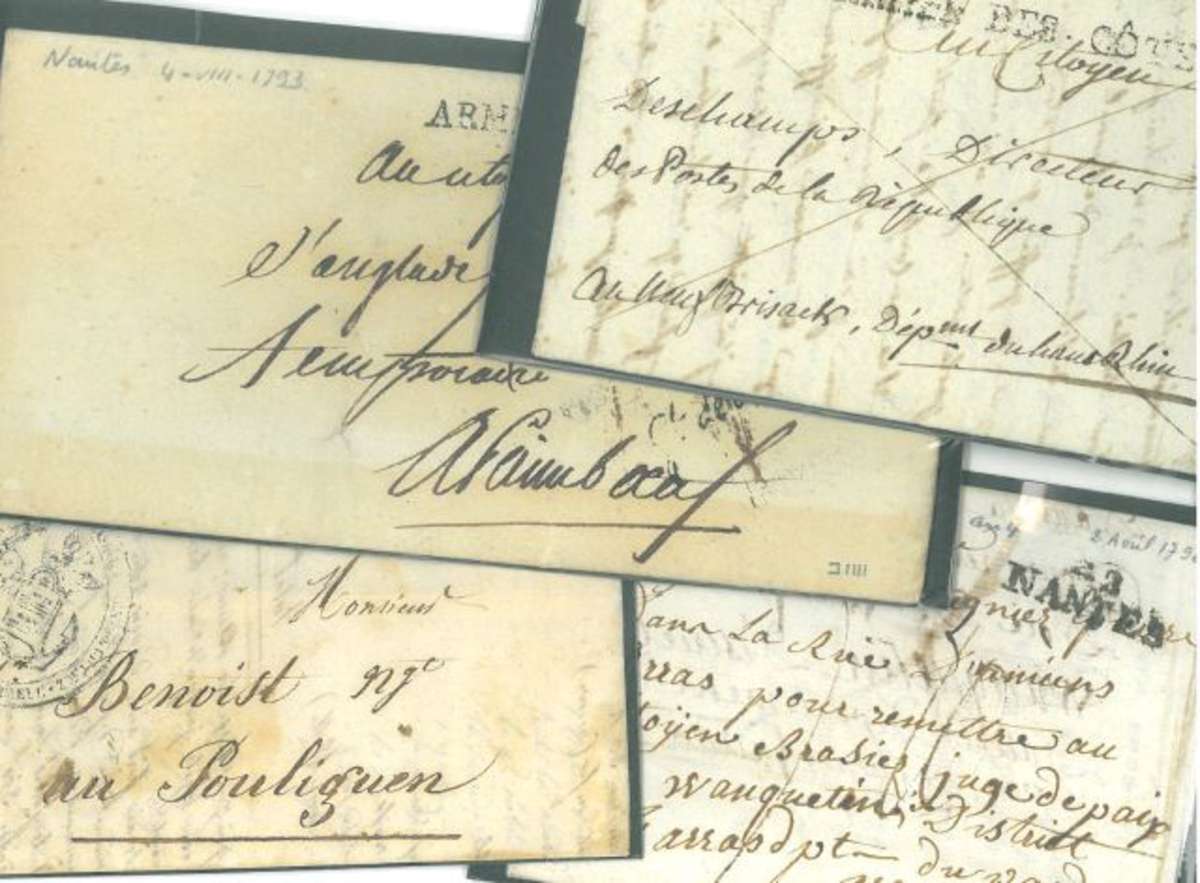 Nantes 4-VIII-1793
ARM
Au cito
L'anglade
Temporaire
A Paimboeuf
DES CÔT
Au Citoyen
Deschamps, Directeur
des Postes de la République
Au Neuf Brisack, Dépment du haut Rhin
Monsieur
Benoist Ngt
au Pouliguen
an 4
2 Août 179
NANTES
dans La Rüe D'amiens
rras pour remettre au
toyen Brasier juge de paix
wanquetin District
arras dpt du